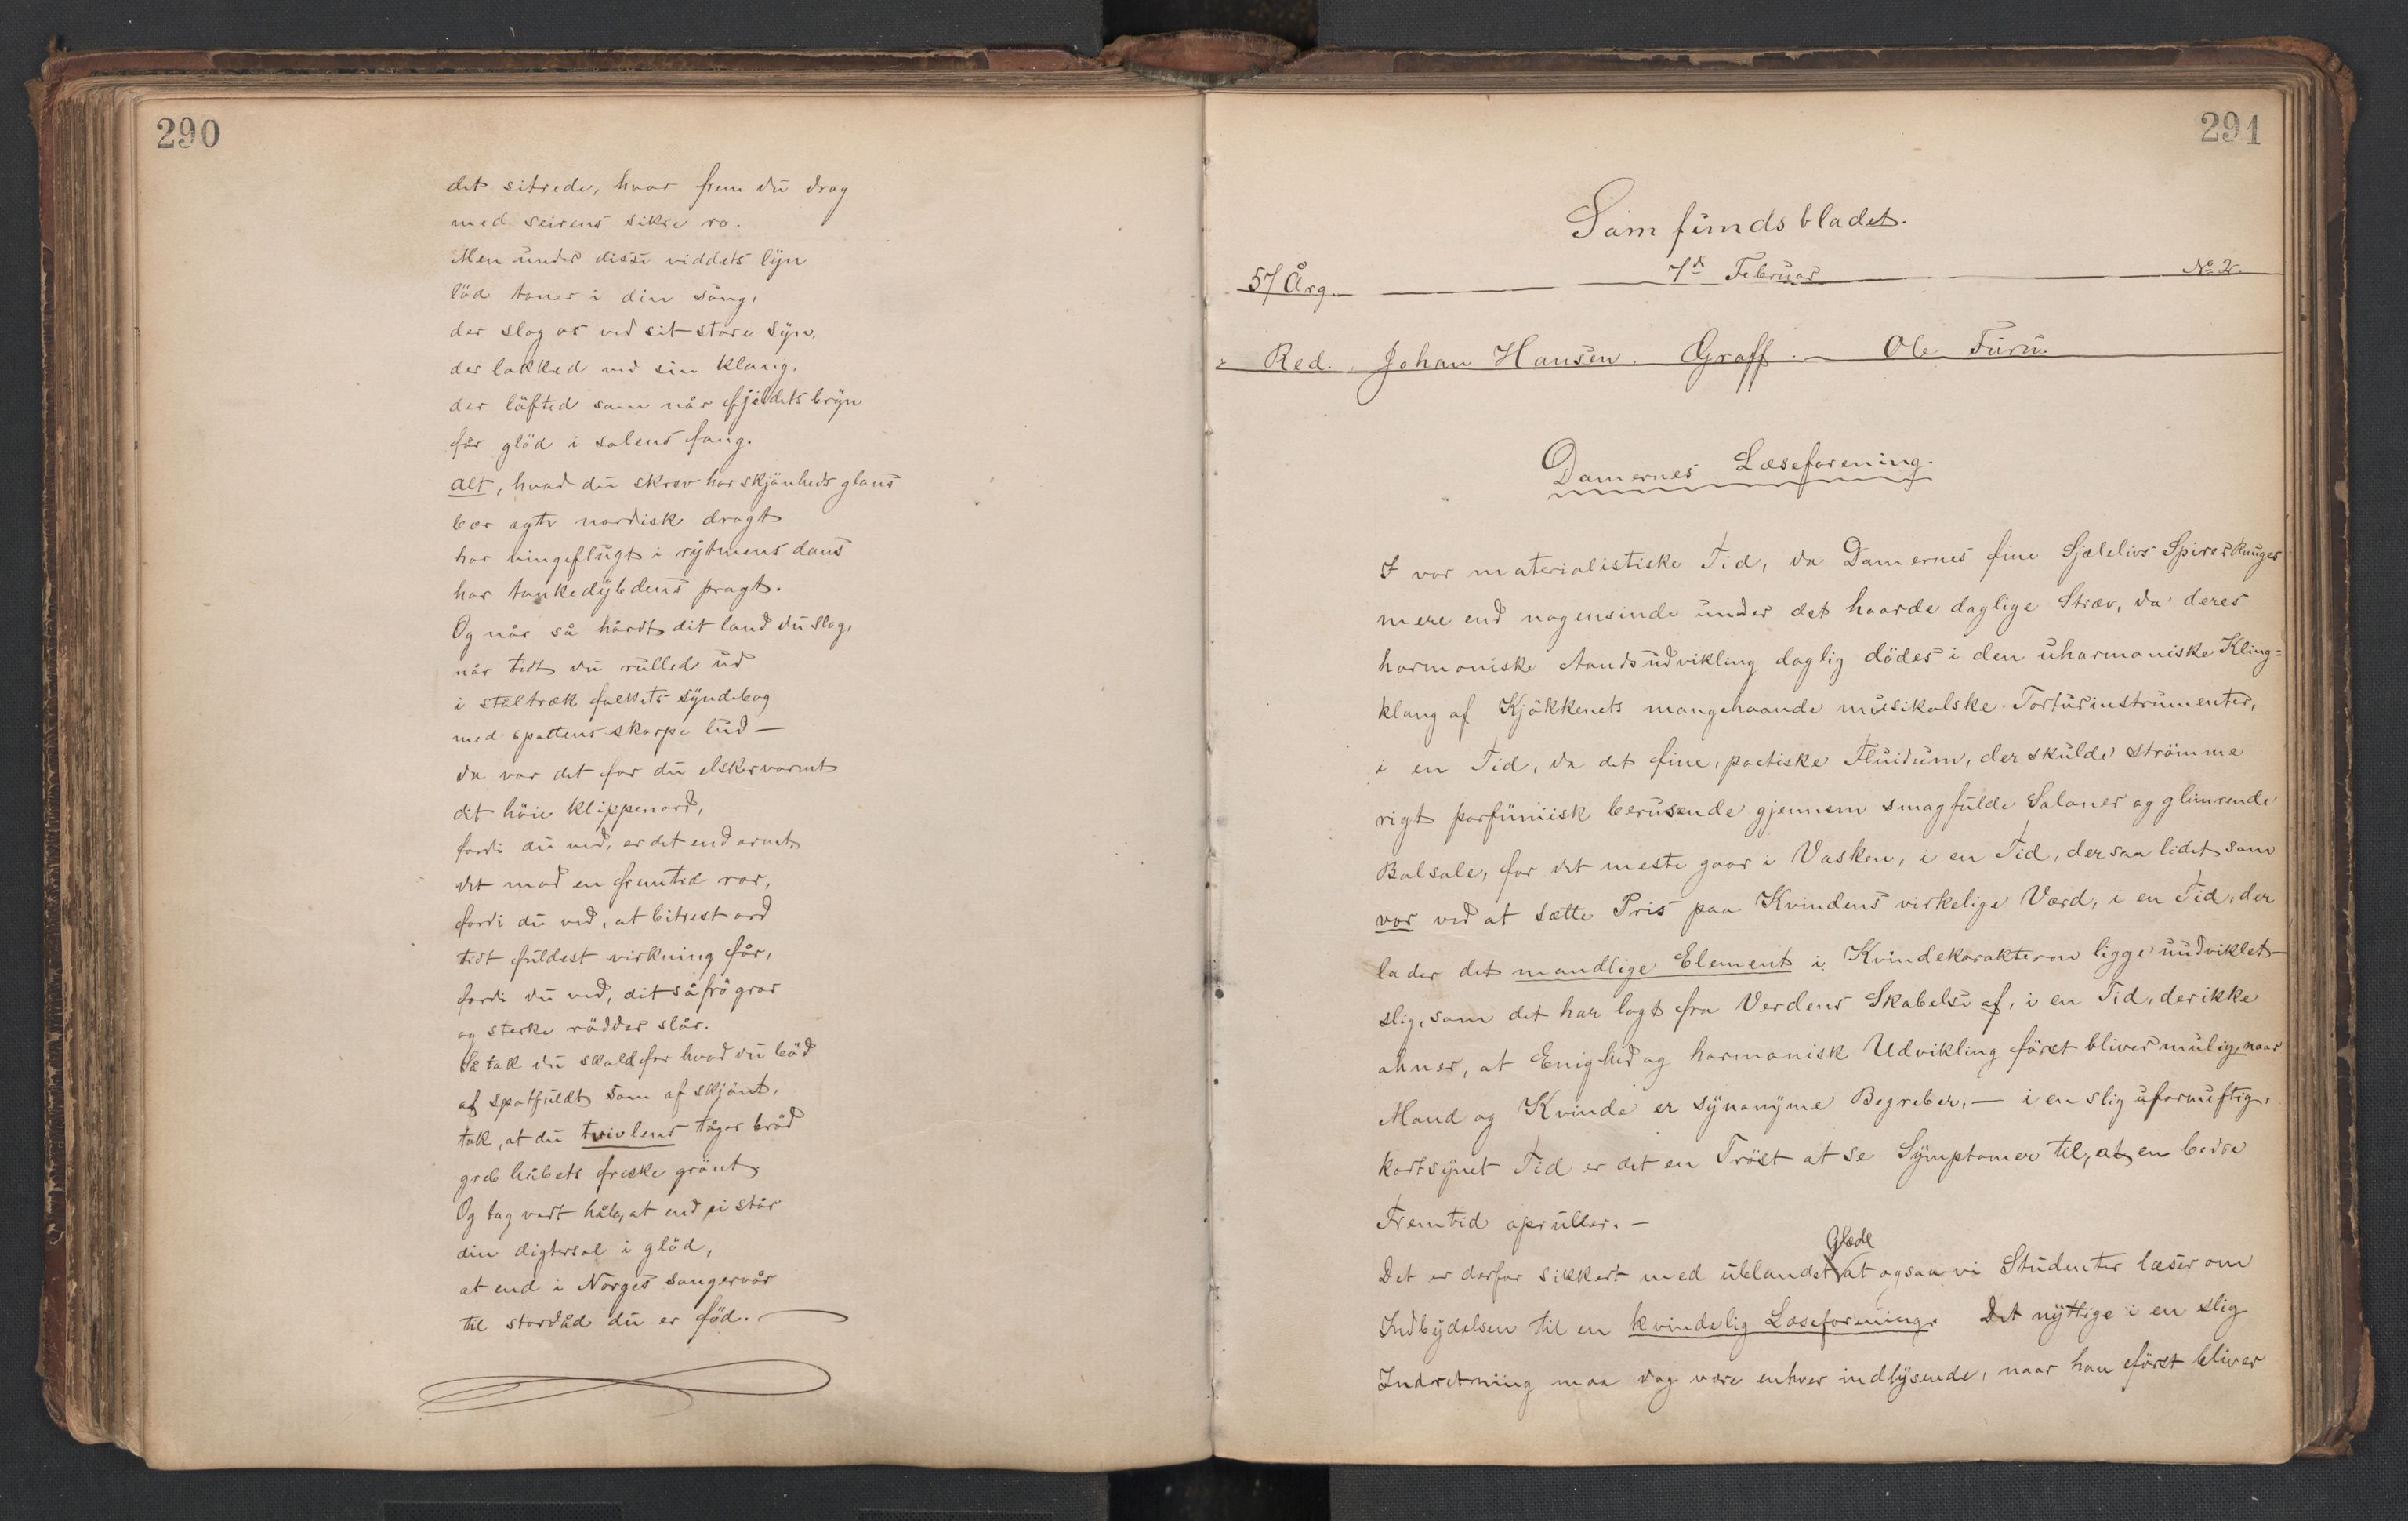 290
det sitrede, hvor frem du drog
med seirens sikre ro.
Men under disse viddets lyn
löd toner i din sang,
der slog os ved sit store syn,
der lokked ved sin klang,
der löfted som når fjeldets bryn
får glöd i solens fang.
Alt, hvad du skrev har skjönheds glans
bær ægte nordisk dragt
har vingeflugt i rytmens dans
har tankedybdens pragt.
Og når så hårdt dit land du slog,
når tidt du rulled ud
i ståltræk folkets syndebog
med spottens skarpe lud —
da var det for du elsker varmt
dit höie klippenord,
fordi du ved, er det end armt
det mod en fremtid ror,
fordi du ved, at bitrest ord
tidt fuldest virkning får,
fordi du ved, dit såfrö gror
og sterke rödder slår.
Så tak du skald for hvad du böd
af spotfuldt som af skjönt,
tak, at du tvivlens tåger bröd
greb håbets friske grönt
Og tag vort håb, at end ei står
din digtersol i glöd,
at end i Norges sangervår
til stordåd du er föd. —
291
Samfundsbladet.
57 Årg. 7d Februar No 2.
Red. Johan Hansen. Graff. — Ole Furu.
Damernes Læseforening.
I vor materialistiske Tid, da Damernes fine Sjælelivs Spirer knuges
mere end nogensinde under det haarde daglige Stræv, da deres
harmoniske Aandsudvikling daglig dödes i den uharmoniske Kling=
klang af Kjökkenets mangehaande musikalske Torturinstrumenter,
i en Tid, da det fine, poetiske Fluidum, der skulde strömme
rigt parfümiisk berusende gjennem smagfulde Saloner og glimrende
Balsale, for det meste gaar i Vasken, i en Tid, der saa lidet som
vor ved at sætte Pris paa Kvindens virkelige Værd, i en Tid, der
lader det mandlige Element i Kvindekarakteren ligge uudviklet
slig, som det har lagt fra Verdens Skabelse af, i en Tid, der ikke
ahner, at Enighed og harmonisk Udvikling först bliver mulig, naar
Mand og Kvinde er synonyme Begreber, — i en slig ufornuftig,
kortsynet Tid er det en Tröst at se Symptomer til, at en bedre
Fremtid oprulles. —
Det er derfor sikkert med ublandet Glæde at ogsaa vi Studenter læser om
Indbydelsen til en kvindelig Læseforening. Det nyttige i en slig
Indretning maa dog være enhver indlysende, naar han först bliver